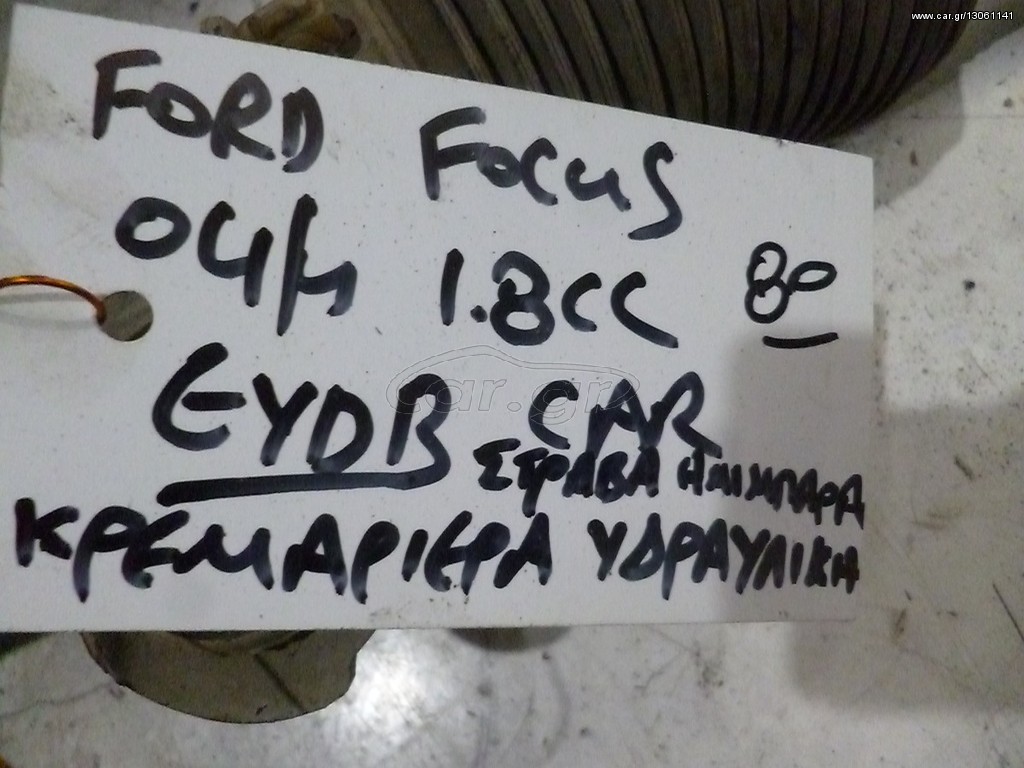 www.car.gr/13061141
FORD FOCUS
04/Μ 1.8CC 80
EYDB CAR
car.gr
ΣΤΡΑΒΑ
ΚΡΕΜΑΡΙΕΡΑ ΥΔΡΑΥΛΙΚΗ